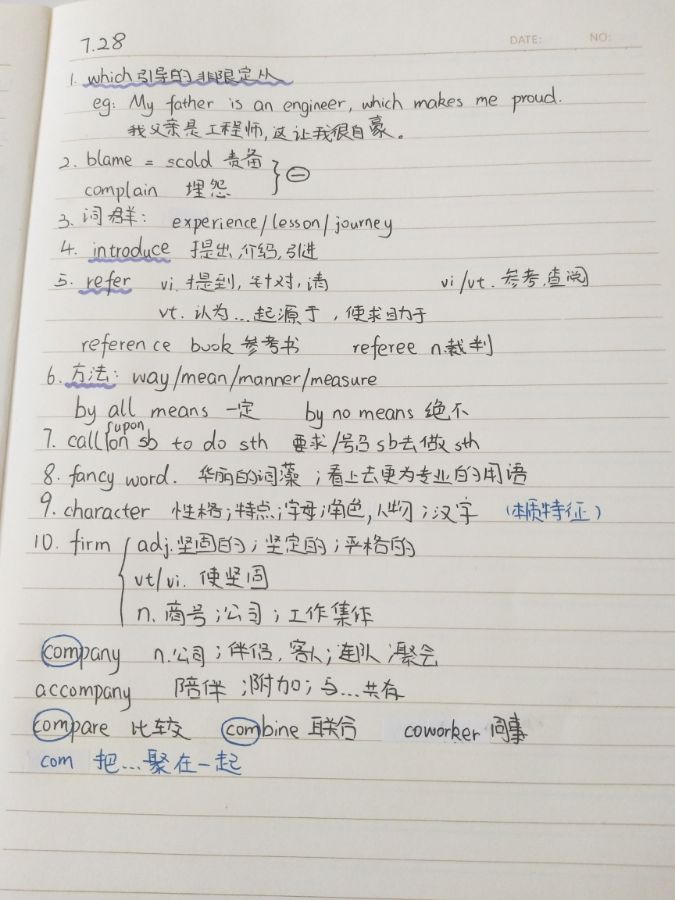 7.28
DATE: NO:
1. which引导的非限定从
eg: My father is an engineer, which makes me proud.
我父亲是工程师,这让我很自豪。
2. blame = scold 责备
complain 埋怨 } ⊖
3. 词群: experience/lesson/journey
4. introduce 提出,介绍,引进
5. refer vi.提到,针对,请 vi/vt. 参考,查阅
vt. 认为…起源于,使求助于
reference book 参考书 referee n.裁判
6. 方法: way/mean/manner/measure
by all means 一定 by no means 绝不
upon
7. call on sb to do sth 要求/号召sb去做sth
8. fancy word. 华丽的词藻;看上去更为专业的用语
9. character 性格;特点;字母;角色,人物;汉字 (本质特征)
10. firm { adj.坚固的;坚定的;严格的
vt/vi. 使坚固
n. 商号;公司;工作集体
company n.公司;伴侣,客人;连队;聚会
accompany 陪伴;附加;与…共有
compare 比较 combine 联合 coworker 同事
com 把…聚在一起